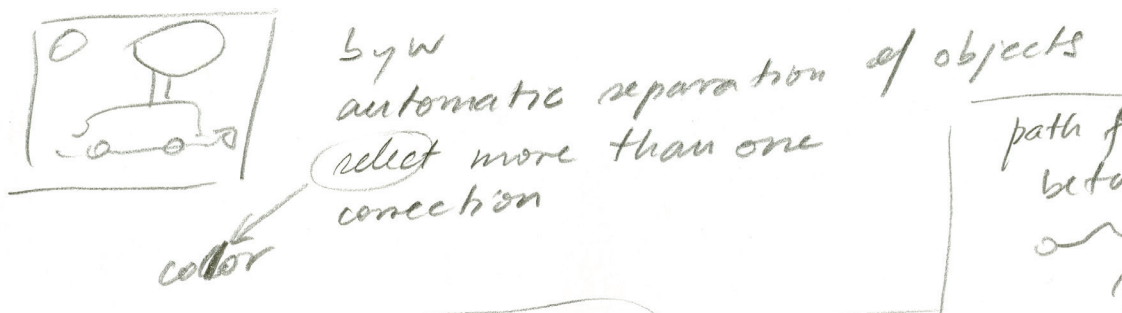 b y w
automatic separation of objects
select more than one
correction
color
path f
betw